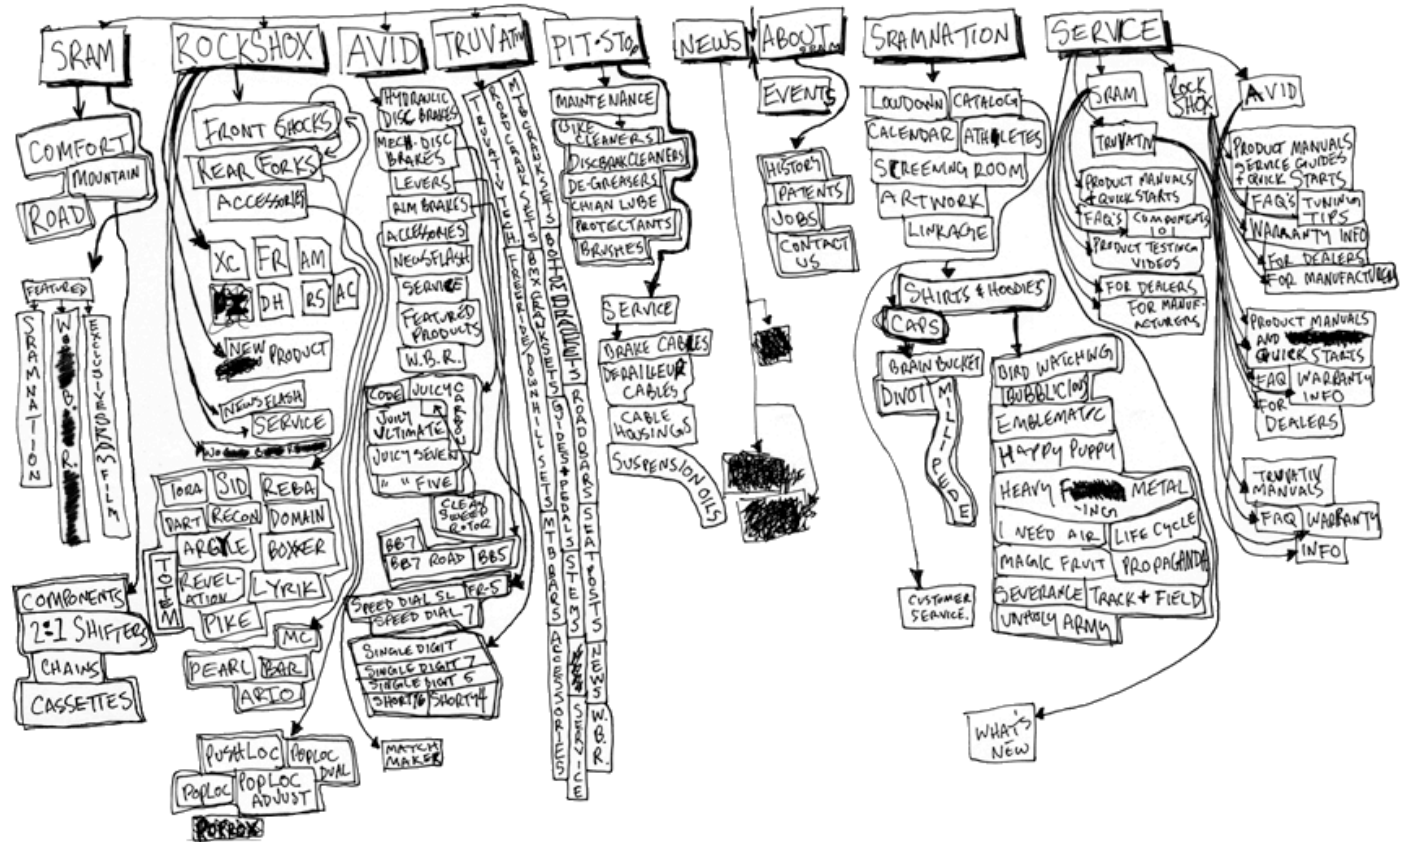 SRAM
ROCKSHOX
AVID
TRUVATIV
PIT•STOP
NEWS
ABOUT
SRAM
SRAMNATION
SERVICE
COMFORT
MOUNTAIN
ROAD
FEATURED
SRAMNATION
W. B. R.
EXCLUSIVE SRAM FILM
COMPONENTS
2:1 SHIFTERS
CHAINS
CASSETTES
FRONT SHOCKS
REAR FORKS
ACCESSORIES
XC
FR
AM
DH
RS
AC
NEW PRODUCT
NEWSFLASH
SERVICE
TORA
SID
REBA
DART
RECON
DOMAIN
ARGYLE
BOXXER
TOTEM
REVEL-
ATION
LYRIK
PIKE
MC
PEARL
BAR
ARIO
PUSHLOC
POPLOC
DUAL
POPLOC
POPLOC
ADJUST
PORROX
HYDRAULIC
DISC BRAKES
MECH. DISC
BRAKES
LEVERS
RIM BRAKES
ACCESSORIES
NEWSFLASH
SERVICE
FEATURED
PRODUCTS
W.B.R.
CODE
JUICY
CARBON
JUICY
ULTIMATE
JUICY SEVEN
" " FIVE
CLEAN
SWEEP
ROTOR
BB7
BB7 ROAD
BB5
SPEED DIAL SL
FR-5
SPEED DIAL-7
SINGLE DIGIT
SINGLE DIGIT 7
SINGLE DIGIT 5
SHORTY6
SHORTY4
MATCH
MAKER
TRUVATIV TECH
FREERIDE DOWNHILL SETS
MTBARS
ACCESSORIES
ROAD CRANK SETS
BMX CRANKSETS
GUIDES + PEDALS
STEMS
SERVICE
MTB CRANKSETS
ROADBARS
SEATPOSTS
NEWS
W.B.R.
MAINTENANCE
BIKE
CLEANERS
DISCBRAKCLEANERS
DE-GREASERS
CHIAN LUBE
PROTECTANTS
BRUSHES
SERVICE
BRAKE CABLES
DERAILLEUR
CABLES
CABLE
HOUSINGS
SUSPENSION OILS
EVENTS
HISTORY
PATENTS
JOBS
CONTACT
US
LOWDOWN
CATALOG
CALENDAR
ATHLETES
SCREENING ROOM
ARTWORK
LINKAGE
SHIRTS & HOODIES
CAPS
BRAIN BUCKET
DIVOT
MILLIPEDE
CUSTOMER
SERVICE.
BIRD WATCHING
BUBBLICIOUS
EMBLEMATIC
HAPPY PUPPY
HEAVY F METAL
-ING
I NEED AIR
LIFE CYCLE
MAGIC FRUIT
PROPAGANDA
SEVERANCE
TRACK + FIELD
UNHOLY ARMY
SRAM
ROCK
SHOX
AVID
TRUVATIV
PRODUCT MANUALS
& QUICKSTARTS
FAQ'S
COMPONENTS
101
PRODUCT TESTING
VIDEOS
FOR DEALERS
FOR MANUF-
ACTURERS
PRODUCT MANUALS
SERVICE GUIDES
& QUICK STARTS
FAQ'S
TUNING
TIPS
WARRANTY INFO
FOR DEALERS
FOR MANUFACTURER
PRODUCT MANUALS
AND
QUICK STARTS
FAQ
WARRANTY
INFO
FOR
DEALERS
TRUVATIV
MANUALS
FAQ
WARRANTY
INFO
WHAT'S
NEW